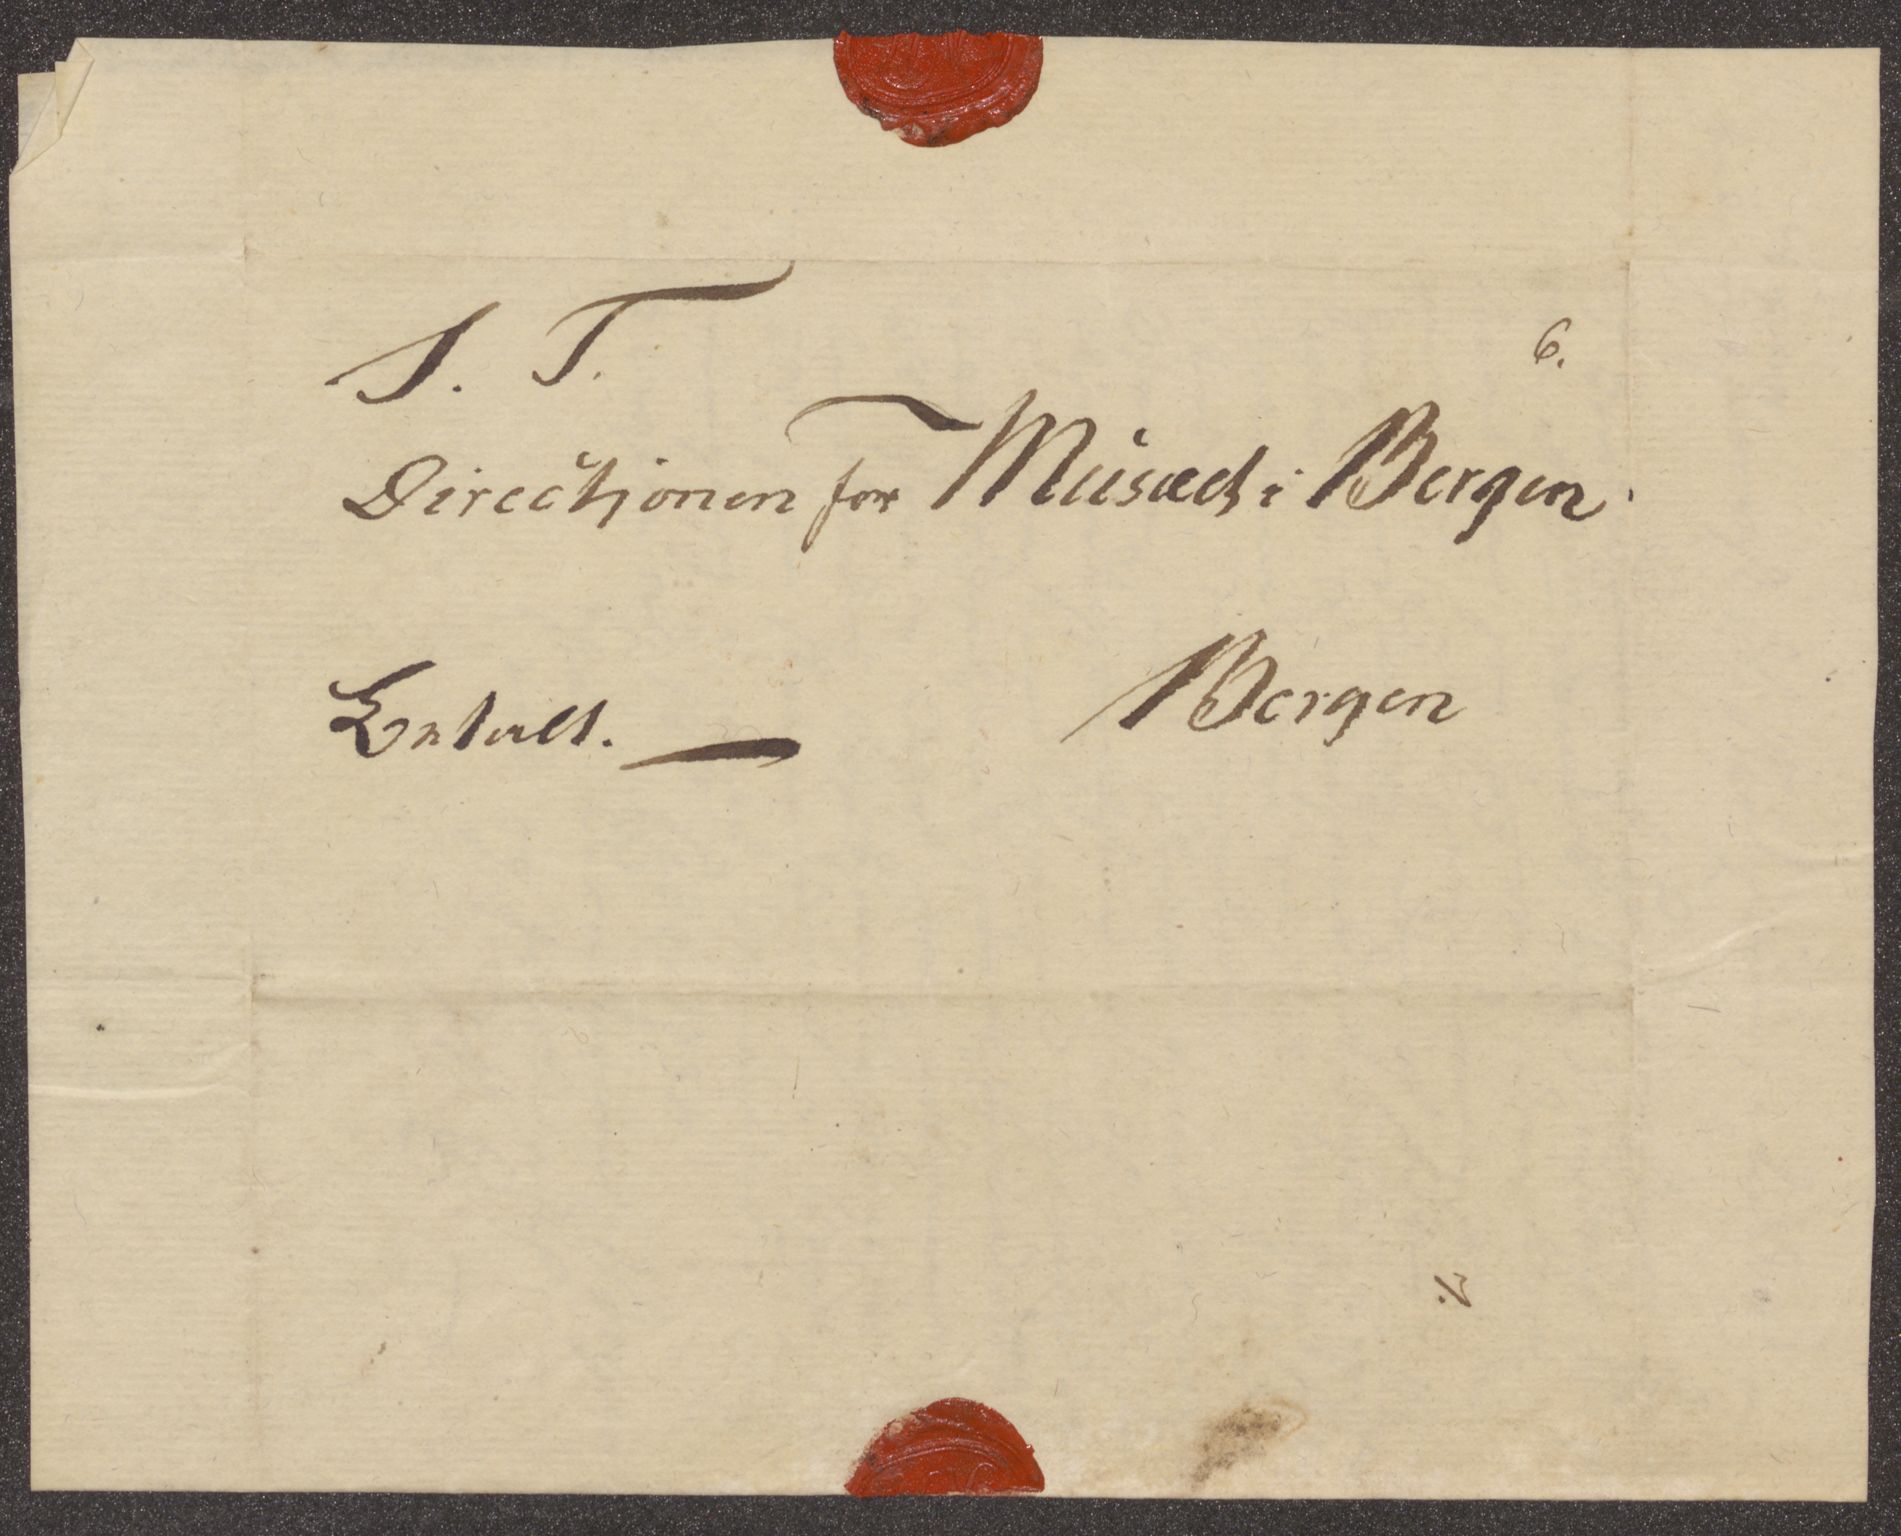 S. T.
6.
Directionen for Musæet i Bergen.
Bergen
Betalt.